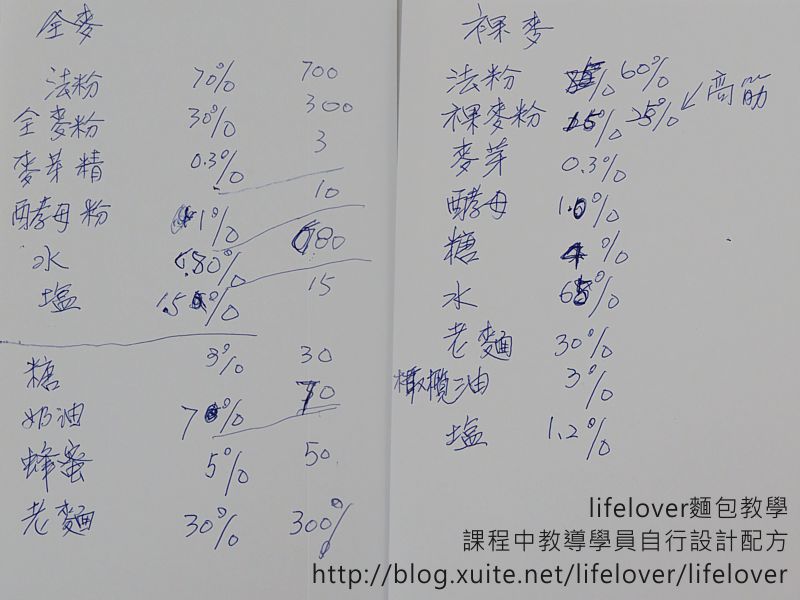 全麥
法粉 70% 700
全麥粉 30% 300
麥芽精 0.3% 3
酵母粉 1% 10
水 680
塩 15
糖 3% 30
奶油 7% 70
蜂蜜 5% 50
老麵 30% 300%
裸麥
法粉 60%
裸麥粉 15% 25% ↙ 高筋
麥芽 0.3%
酵母 1.0%
糖 4%
水 65%
老麵 30%
橄欖油 3%
塩 1.2%
lifelover麵包教學
課程中教導學員自行設計配方
http://blog.xuite.net/lifelover/lifelover